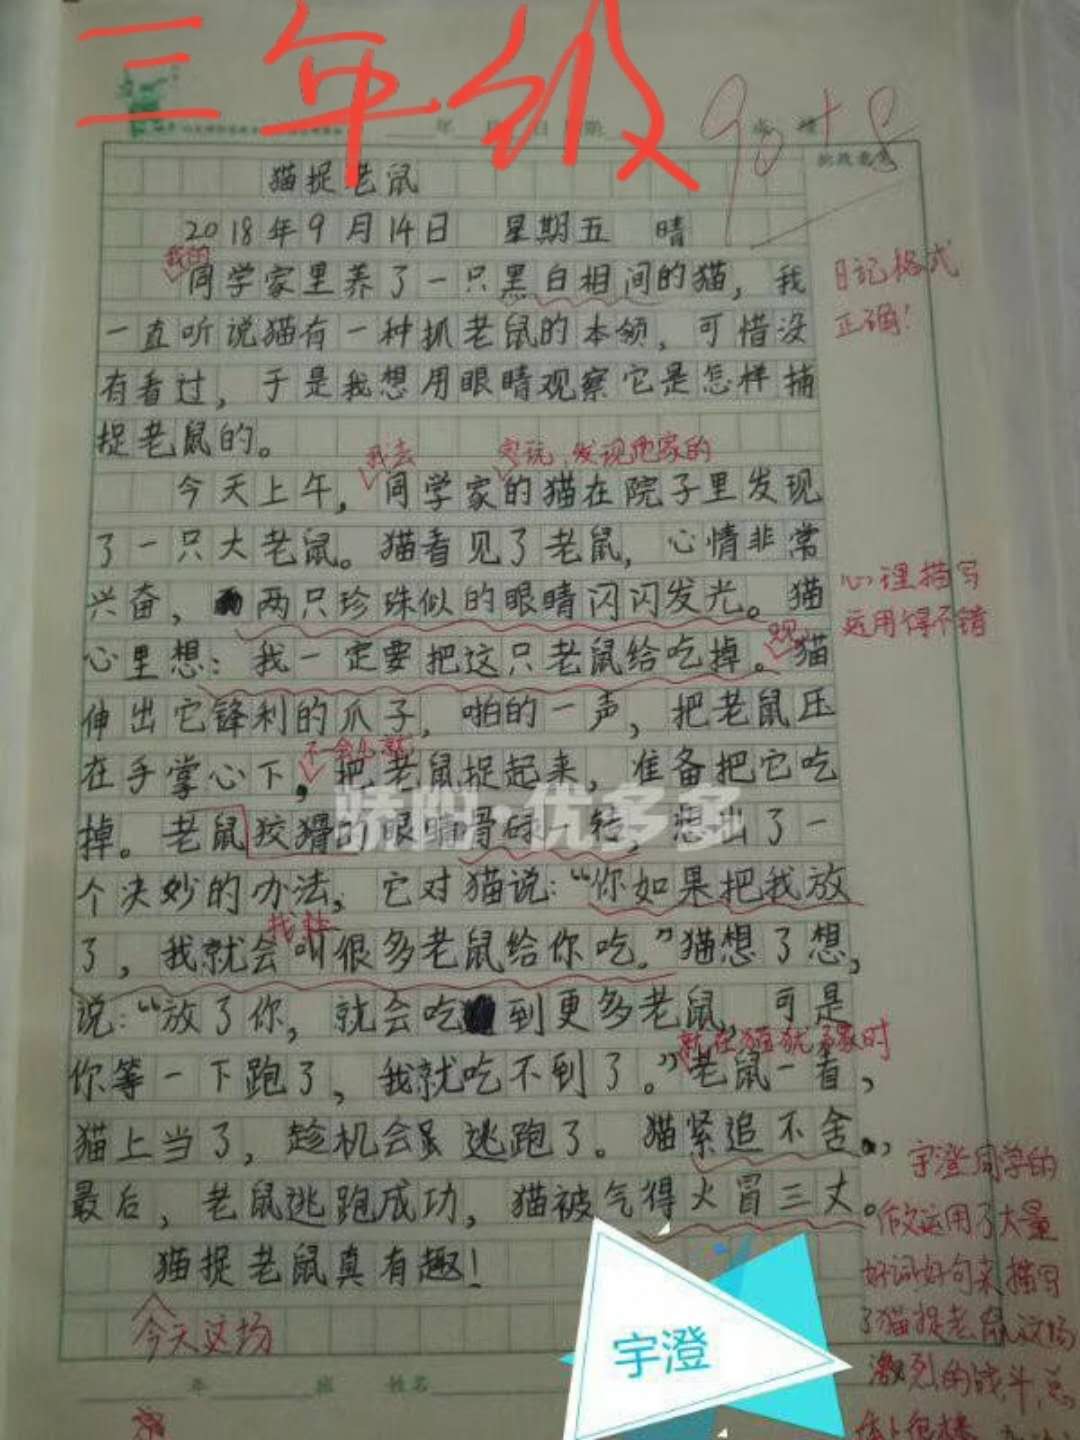 三年级
90+8
猫捉老鼠
2018年9月14日 星期五 晴
我的
同学家里养了一只黑白相间的猫，我
日记格式
一直听说猫有一种抓老鼠的本领，可惜没
正确！
有看过，于是我想用眼睛观察它是怎样捕
捉老鼠的。
我去 家玩，发现他家的
今天上午，同学家的猫在院子里发现
了一只大老鼠。猫看见了老鼠，心情非常
心理描写
兴奋，两只珍珠似的眼睛闪闪发光。猫
运用得不错
心里想：我一定要把这只老鼠给吃掉。猫
伸出它锋利的爪子，啪的一声，把老鼠压
不一会儿就
在手掌心下，把老鼠捉起来，准备把它吃
骄阳·优多多
掉。老鼠狡猾的眼睛骨碌一转，想出了一
个决妙的办法，它对猫说：“你如果把我放
我就
了，我就会叫很多老鼠给你吃。”猫想了想，
说：“放了你，就会吃到更多老鼠，可是
就在猫犹豫时
你等一下跑了，我就吃不到了。”老鼠一看，
猫上当了，趁机会逃跑了。猫紧追不舍，
最后，老鼠逃跑成功，猫被气得火冒三丈。
猫捉老鼠真有趣！
今天这场
宇澄同学的
作文运用了大量
好词好句来描写
了猫捉老鼠这场
激烈的战斗，总
体上很棒
宇澄
年 班 姓名